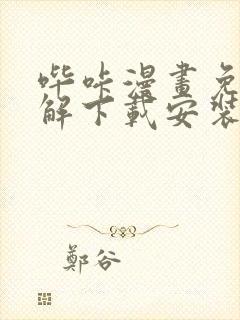 哔咔漫畫免
解下載安裝
鄭谷